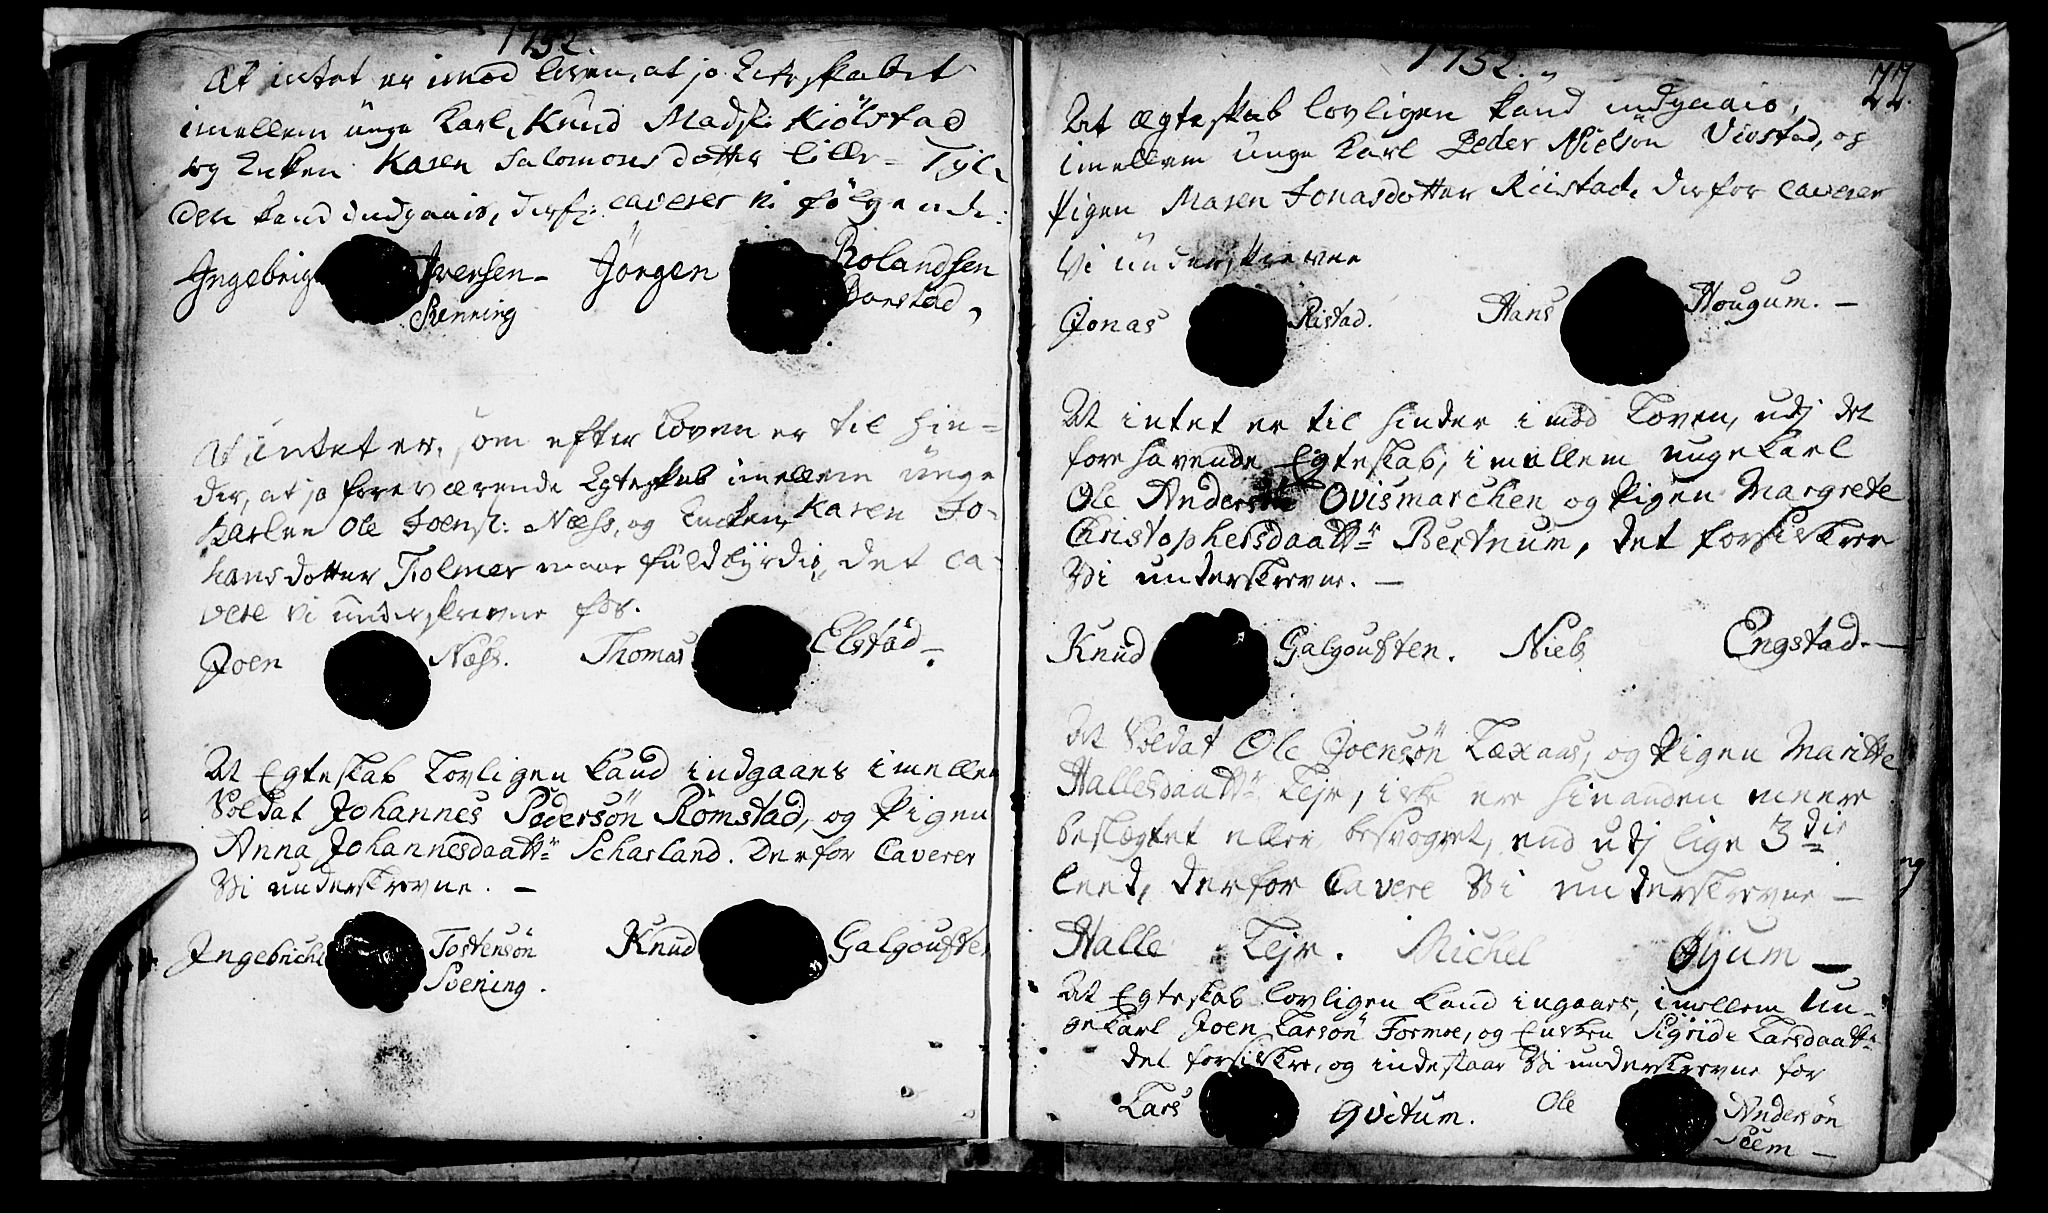 1752.
At intet er imod loven, at jo Ecteskabet
imellem unge Karl, Knud Madss: Kiölstad
og Enken Karen Salomons dotter Lille-Tyl-
den kand indgaais, derfor: caverer vi følgende:
Ingebrigt Iversen- Jörgen Rolandsen
Renning Barstad,
At intet er, som efter Loven er til hin-
der, at jo foreværende Egteskab imellem unge
Karlen Ole Joens: Næss, og Encken Karen Jo-
hansdotter Tolmer maae fuldbyrdis, det ca-
vere vi underskrevne for.
Joen Næss. Thomas Elstad.
At Egteskab Lovligen kand indgaaes imellem
Soldat Johannes Pedersön Römstad, og Pigen
Anna Johannesdaattr Scharland. Derfor Caverer
Wi underskrevne. -
Ingebricht Tostensön Knud Galgouften
Soening.
1752.
77.
At Ægteskab lovligen kand indgaais,
imellem Unge Karl Peder Nielsön Vivstad, og
Pigen Maren Jonasdotter Riistad, derfor caverer
Vi underskrevne
Jonas Ristad. Hans Hougum. -
At intet er til hinder imod Loven, udj det
forehavende Egteskab, imellem ungekarl
Ole Andersön Qvismarchen og Pigen Margrete
Christophersdaattr Bertnum, det forsikrer
Wi underskrevne. -
Knud Galgouften. Niels Engstad. -
At Soldat Ole Joensön Laxaas, og Pigen Maritte
Hallesdaattr Lejr, icke ere hinanden meere
beslægtet eller besvogret, end udj lige 3die
leed, derfor Cavere Wi underskrevne -
Halle Lejr. Michel Öyum -
At Egteskab lovligen kand ingaaes, imellem Un-
gekarl Joen Larsön Formoe, og Encken Sigride Larsdaattr
det forsikkre, og indestaar Wi underskrevne for
Lars Qvitum. Ole Andersön
Seem -